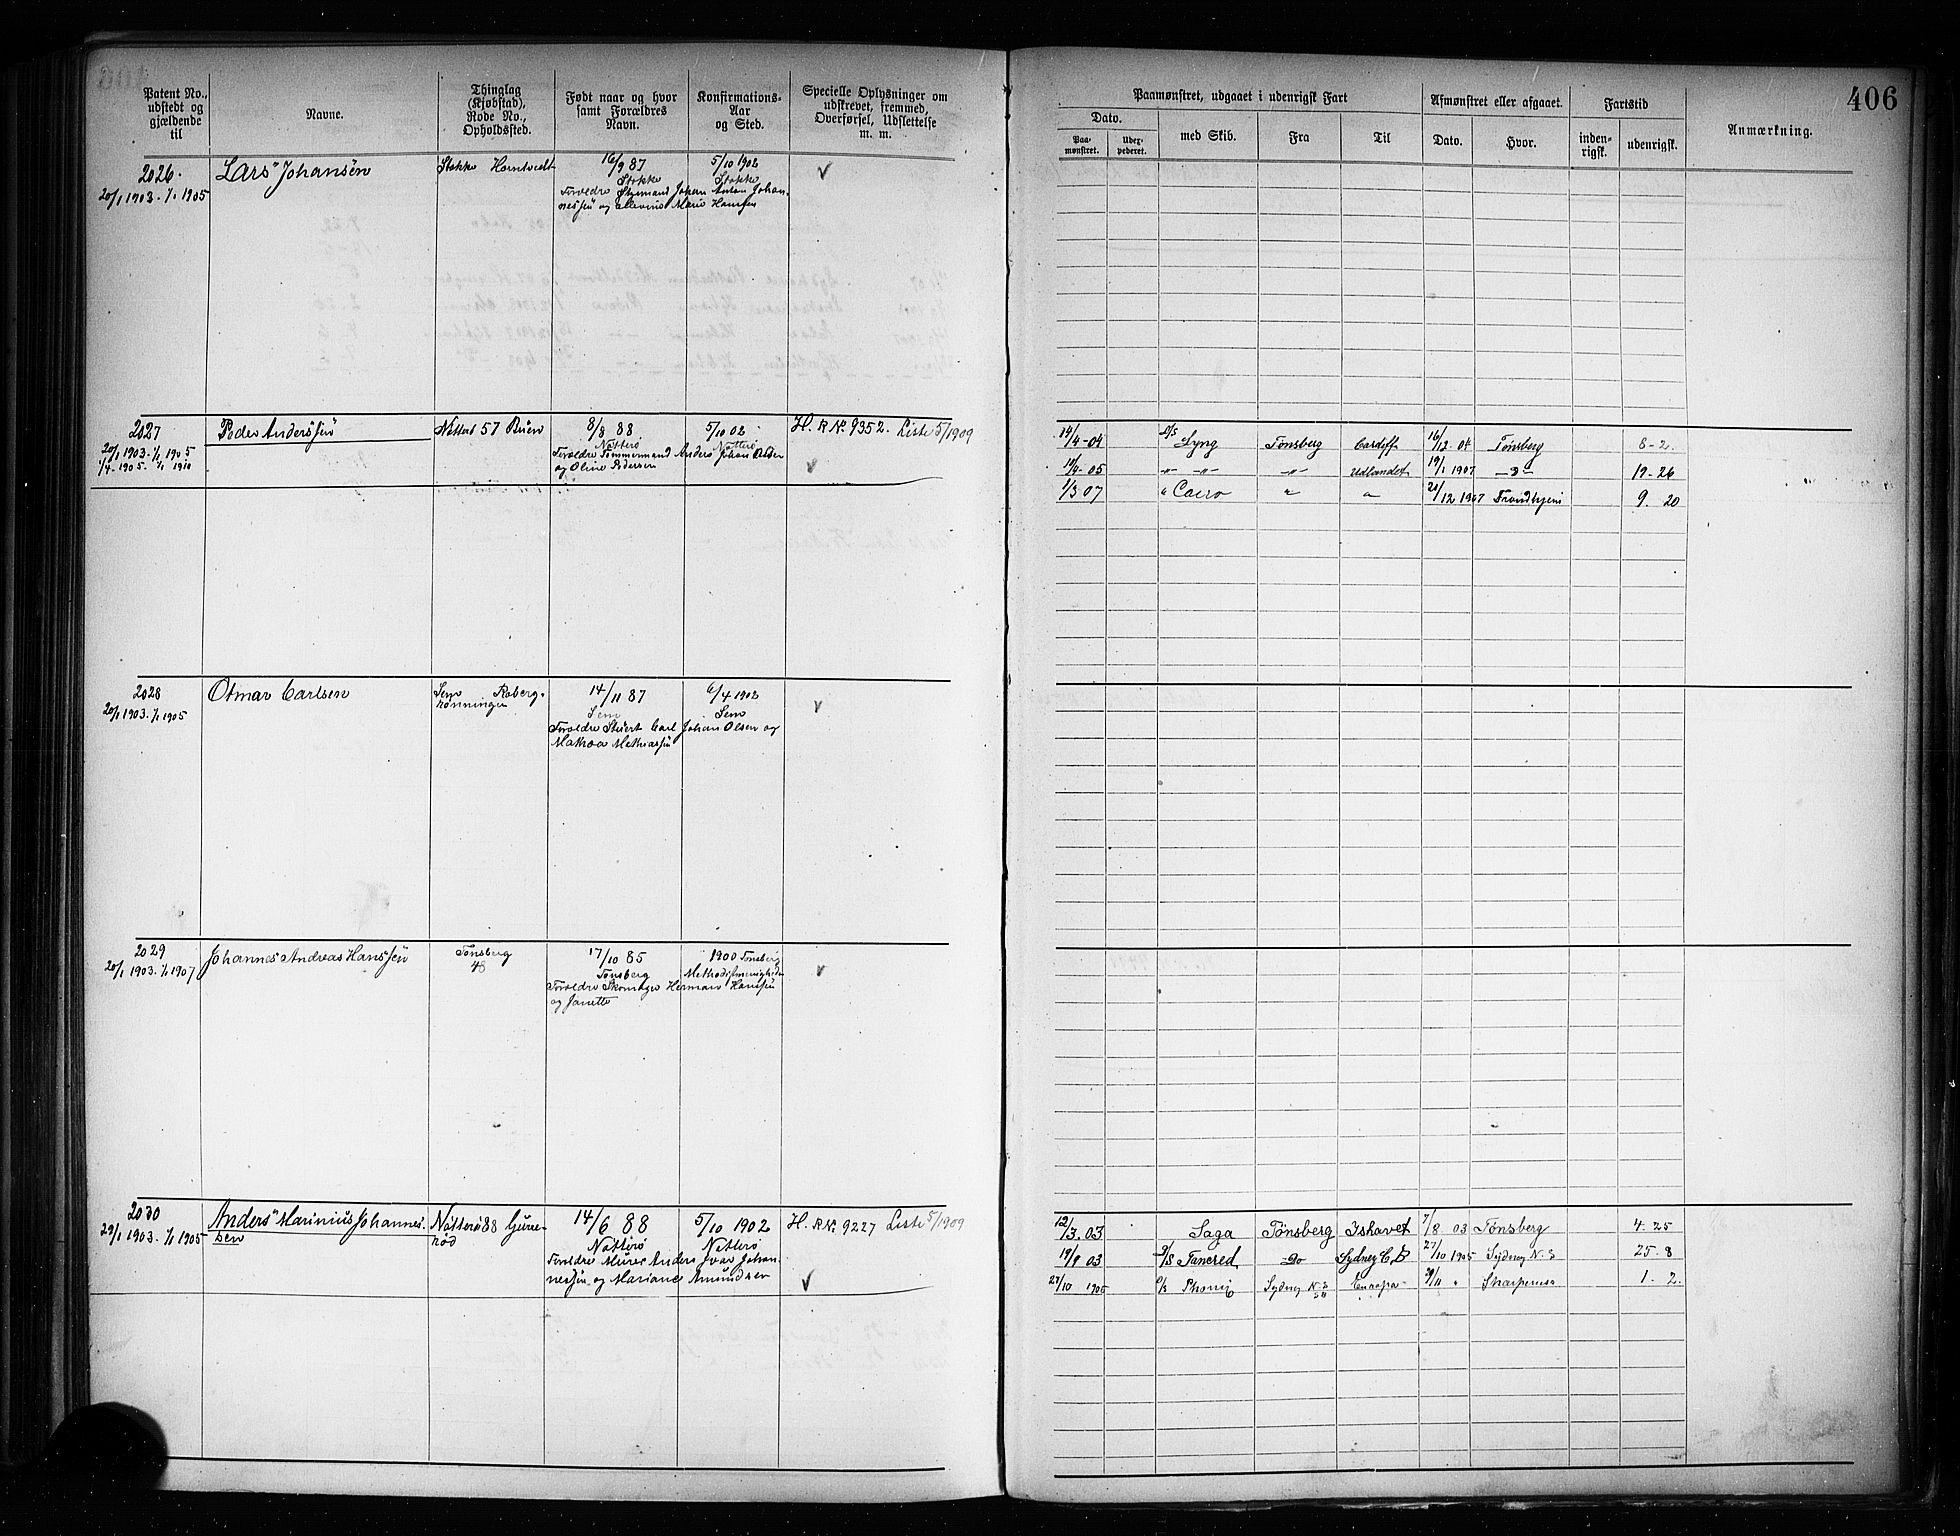 406
Patent No., udstedt og gjældende til
Navne.
Thinglag (Kjøbstad), Rode No., Opholdssted.
Født naar og hvor samt Forældres Navn.
Konfirmations-Aar og Sted.
Specielle Oplysninger om udskrevet, fremmed, Overførsel, Udslettelse m. m.
Paamønstret, udgaaet i udenrigsk Fart
Afmønstret eller afgaaet.
Fartstid
Anmærkning.
Dato.
Paa-mønstret.
Uder-pederet.
med Skib.
Fra
Til
Dato.
Hvor.
inden-rigsk.
udenrigsk.
2026.
20/1 1903. 1/1 1905
Lars" Johansen
Stokke Horntvedt
16/9 87
Stokke
5/10 1902
Stokke
Forældre Styrmand Johan Anton Johan-
nessen og Marie Hansen
2027
20/1 1903. 1/1 1905
1/4 1905. 1/1 1910
Peder Anderssen
Nøtterø 57 Buen
8/8 88
Nøtterø
5/10 02
Nøtterø
Forældre Tømmermand Anders Johan Ander
og Oline Pedersen
H. R No. 9352. Liste 5/1909
14/4-04 D/S Lyng Tønsberg Cardiff 16/12 04 Tønsberg 8-2
19/9-05 -"- -"- -"- Udlandet 19/1 1907 -"- 19-26
1/3 07 " Cairo " " 21/12 1907 Trondhjem 9. 20
2028
20/1 1903. 1/1 1905
Otmar Carlsen
Sem Roberg-
rønningen
14/11 87
Sem
6/4 1902
Sem
Forældre Stuert Carl Johan Olsen og
Mathea Mathiassen
2029
20/1 1903. 1/1 1907
Johannes Andreas Hanssen
Tønsberg
48
17/10 85
Tønsberg
1900 Tønsberg
Methodistmenigheden
Forældre Skomager Herman Hanssen
og Janette
2030
29/1 1903. 1/1 1905
Anders" Marinius Johannes-
sen
Nøtterø 88 Gurre-
rød
14/6 88
Nøtterø
5/10 1902
Nøtterø
Forældre Murer Anders Ivar Johan-
nessen og Mariane Amundsen
H. R No. 9227 Liste 5/1909
12/3. 03 Saga Tønsberg Ishavet 7/8 03 Tønsberg 4. 25
19/9 03 S/S Tancred Do Sydney C. B 27/10 1905 Sydney N. S 25. 8
27/10 1905 Sydney N. S Europa 1. 2.